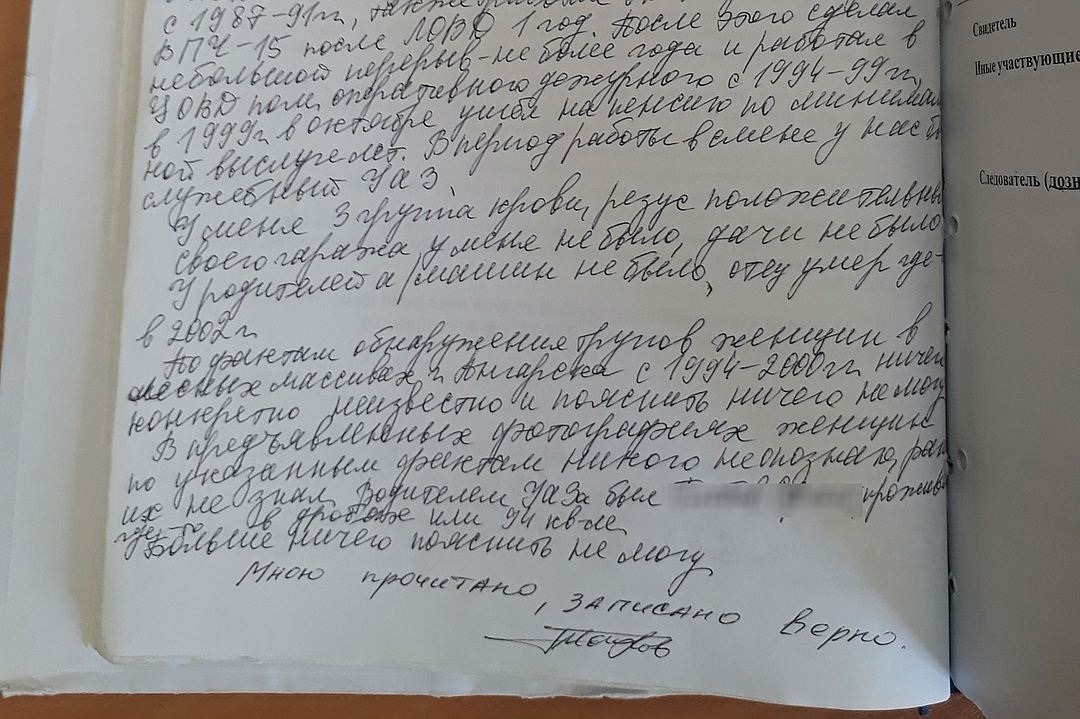 с 1987-91гг, также
ВПЧ-15 после ЛОВД 1 год. После этого сделал
небольшой перерыв - не более года и работал в
ЦОВД пом. оперативного дежурного с 1994-99гг,
в 1999г. в октябре ушёл на пенсию по минимал
ной выслуге лет. В период работы в смене у нас бы
служебный УАЗ.
У меня 3 группа крови, резус положительный
своего гаража у меня не было, дачи не было
У родителей машин не было, отец умер где-
в 2002г.
По фактам обнаружения трупов женщин в
лесных массивах г. Ангарска с 1994-2000гг ничего
конкретно неизвестно и пояснить ничего не могу
В предъявленных фотографиях женщин
по указанным фактам никого не опознаю, ран
их не знал. Водителем УАЗа был прожива
где-то в дробях или 94 кв-ле
Больше ничего пояснить не могу
Мною прочитано, записано верно.
Свидетель
Иные участвующие
Следователь (дозн